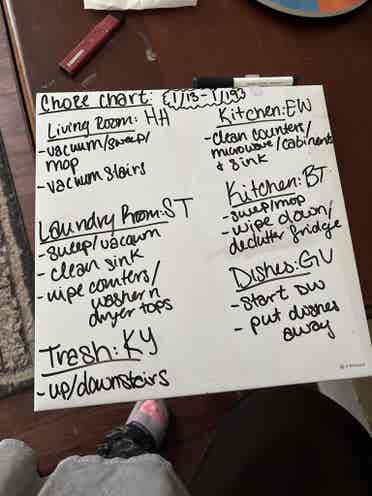 Chore chart: 1/13-1/19
Living Room: HH
-vacuum/sweep/
mop
-vacuum stairs
Laundry Room: ST
-sweep/vacuum
-clean sink
-wipe counters/
washer n
dryer tops
Trash: KY
-up/downstairs
Kitchen: EW
-clean counters/
microwave/cabinents
& sink
Kitchen: BT
-sweep/mop
-wipe down/
declutter fridge
Dishes: GV
-start DW
-put dishes
away